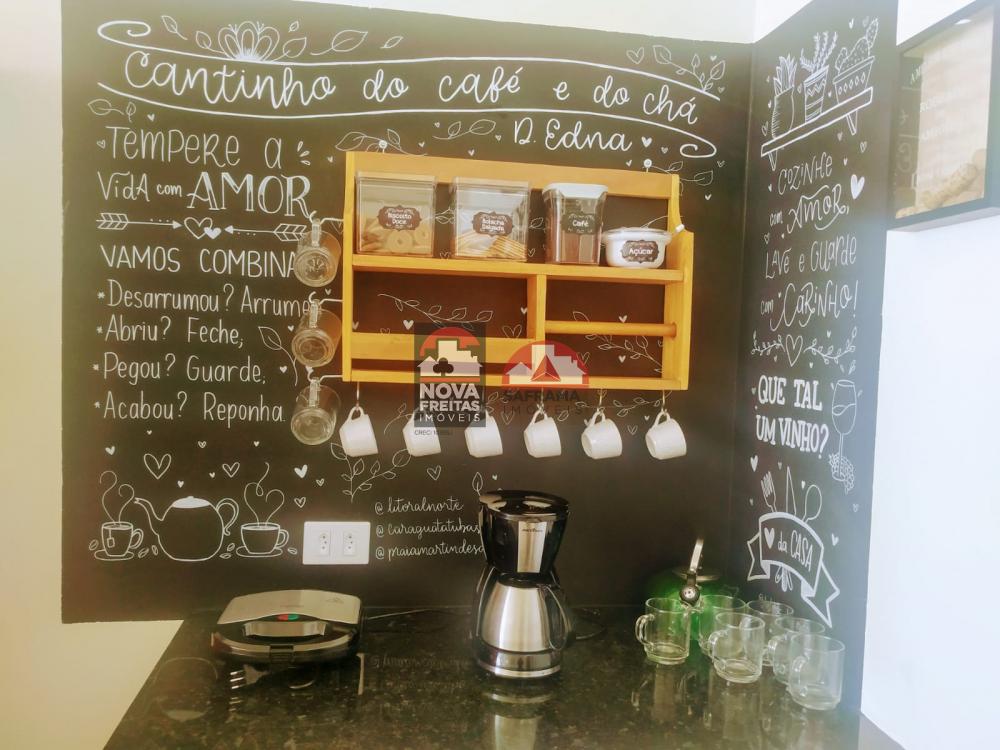 Cantinho do café e do chá
D. Edna
TEMPERE A
VIDA com AMOR
VAMOS COMBINA
*Desarrumou? Arrume
*Abriu? Feche,
*Pegou? Guarde,
*Acabou? Reponha.
@litoralnorte
@caraguatatubas
@praiamartindesa
Biscoito
Doce
Bolacha
Salgada
Café
Açúcar
NOVA
FREITAS
IMÓVEIS
SAFRAMA
IMÓVEIS
COZINHE
com AMOR,
LAVE e GUARDE
com CARINHO!
QUE TAL
UM VINHO?
da CASA